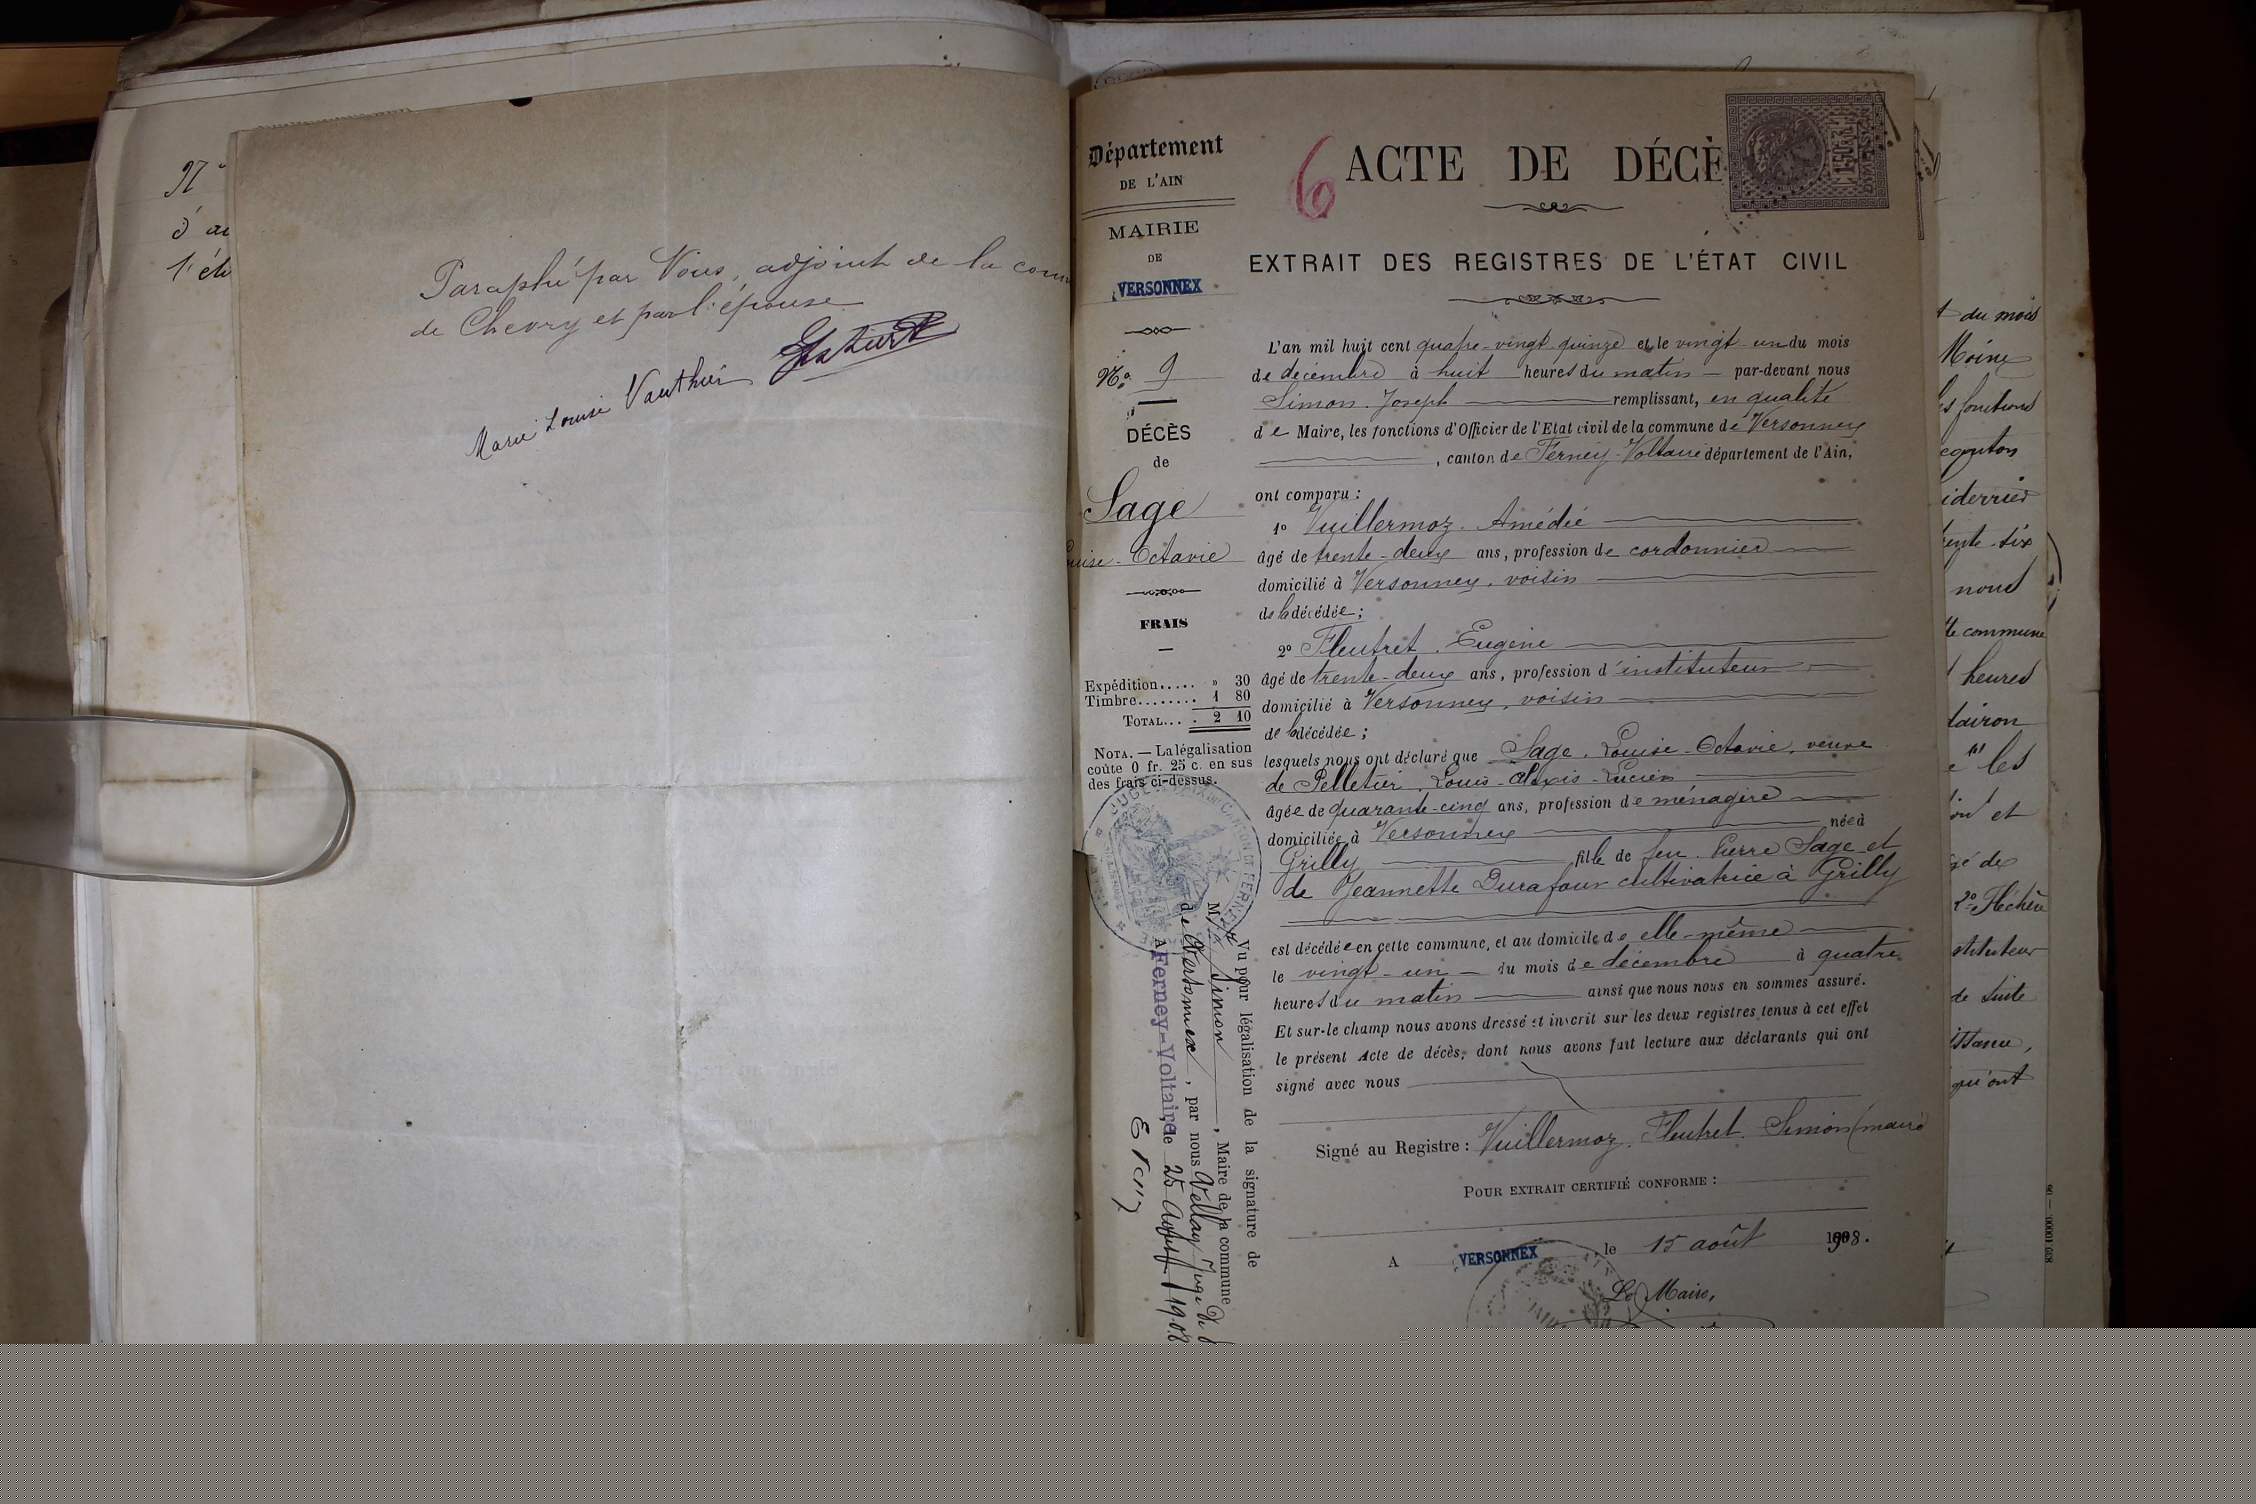 N°
d'au
l'ét
Paraphé par Nous, adjoint de la com
de Chevry et par l'épouse
Marie Louise Vauthier
Département
DE L'AIN
MAIRIE
DE
VERSONNEX
N° 9
DÉCÈS
de
Sage
ouise-Octavie
FRAIS
Expédition..... » 30
Timbre........ 1 80
TOTAL.... 2 10
NOTA. — La légalisation
coûte 0 fr. 25 c. en sus
des frais ci-dessus.
Vu pour légalisation de la signature de
M. Simon, Maire de la commune
de Versonnex, par nous Vellay Juge de
A Ferney-Voltaire, le 25 Août 1908
6 ACTE DE DÉCÈ
EXTRAIT DES REGISTRES DE L'ÉTAT CIVIL
L'an mil huit cent quatre-vingt quinze et le vingt-un du mois
de décembre à huit heures du matin — par-devant nous
Simon Joseph remplissant, en qualité
de Maire, les fonctions d'Officier de l'Etat civil de la commune de Versonnex
, canton de Ferney-Voltaire département de l'Ain,
ont comparu :
1° Vuillermoz. Amédié
âgé de trente-deux ans, profession de cordonnier
domicilié à Versonnex, voisin
de la décédée ;
2° Fleutret. Eugène
âgé de trente-deux ans, profession d'instituteur
domicilié à Versonnex, voisin
de la décédée ;
lesquels nous ont déclaré que Sage. Louise-Octavie, veuve
de Pelletier. Louis-Alexis-Lucien
âgée de quarante-cinq ans, profession de ménagère
domiciliée à Versonnex née à
Grilly fille de feu Pierre Sage et
de Jeannette Durafour cultivatrice à Grilly
est décédée en cette commune, et au domicile de elle-même
le vingt-un du mois de décembre à quatre
heures du matin ainsi que nous nous en sommes assuré.
Et sur-le champ nous avons dressé et inscrit sur les deux registres tenus à cet effet
le présent acte de décès, dont nous avons fait lecture aux déclarants qui ont
signé avec nous
Signé au Registre : Vuillermoz. Fleutret. Simon (maire
POUR EXTRAIT CERTIFIÉ CONFORME :
A VERSONNEX, le 15 août 1908.
Le Maire,
du mois
Moine
fonctions
trente-six
nous
commune
heures
les
et
gé de
2° Fléchère
stituteur
de suite
qui ont